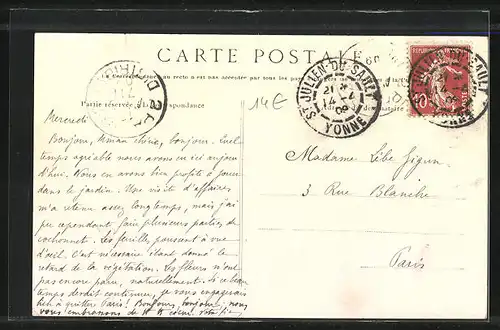 CARTE POSTALE
La Correspondance au recto n'est pas acceptée par tous les pays étrangers
Partie réservée à la Correspondance
ST JULIEN-DU-SAULT
21
14 -4
09
YONNE
14 €
Mercredi
Bonjour, bonjour. Quel
temps agréable nous avons eu ici aujour
d'hui. Nous en avons bien profité à jouer
dans le jardin. Une visite d'affaires
m'a retenu assez longtemps, mais j'ai
pu cependant faire plusieurs parties de
cochonnet. Les feuilles poussent à vue
d'œil. C'est nécessaire étant donné le
retard de la végétation. Les fleurs n'ont
pas encore paru, naturellement. Si ce beau
temps devait continuer, je vous engagerais
bien à quitter Paris! Bonjour, bonjour, nous
vous embrassons de tt cœur.
Madame
3 Rue Blanche
Paris